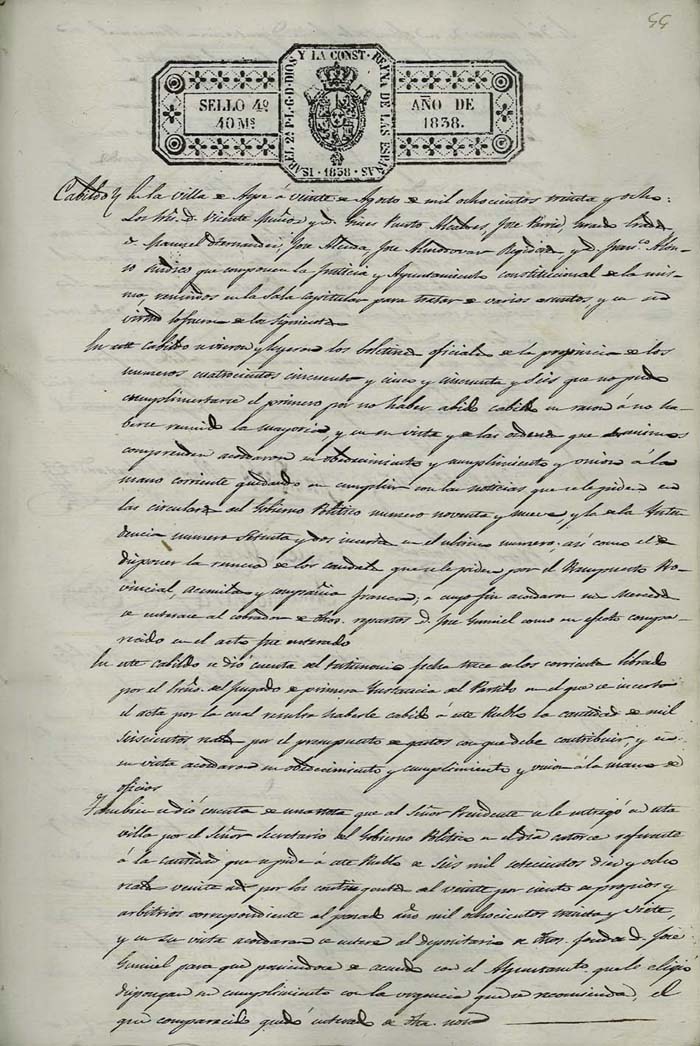 55
ISABEL 2ª P. L. G. D. DIOS Y LA CONST. REYNA DE LAS ESPAÑAS · 1838 ·
SELLO 4º
40 Mˢ
AÑO DE
1838.
Cabildo En la Villa de Aspe á veinte de Agosto de mil ochocientos treinta y ocho
Los Sres. D. Vicente y D. Gines Puerto Alcaldes, Jose
D. Manuel Hernandez, Jose Jose Almodovar Regidores, y D. Franco. Alon-
so Sindico que componen la Justicia y Ayuntamiento constitucional de la mis-
ma, reunidos en la Sala capitular para tratar de varios asuntos, y en su
virtud lo fueron de los siguientes
En este cabildo se vieron y leyeron los boletines oficiales de la provincia de los
numeros cuatrocientos cincuenta y cinco y cincuenta y seis que no pudo
cumplimentarse el primero por no haber abido cabildo en razon á no ha-
berse reunido la mayoria, y en su vista y de las ordenes que los mismos
comprenden acordaron su obedecimiento y cumplimiento y union á la
mano corriente quedando en cumplir con las noticias que se le piden en
las circulares del Gobierno Politico numero noventa y nueve, y la de la Inten-
dencia numero setenta y dos inserta en el ultimo numero; asi como el de
disponer la de los caudales que se le piden por el Presupuesto Pro-
vincial, y compañia franca; a cuyo fin acordaron sus Mercedes
se enterase al cobrador de dhos. repartos D. Jose Gumiel como en efecto compa-
recido en el acto fue enterado
En este cabildo se dio cuenta del testimonio fecha trece de los corrientes librado
por el Juzgado de primera Instancia del Partido en el que se inserta
el acta por la cual resulta haberle cabido á este Pueblo la cantidad de mil
seiscientos reales por el presupuesto de gastos con que debe contribuir, y en
su vista acordaron su obedecimiento y cumplimiento y union á la mano de
oficios
Tambien se dió cuenta de una nota que al Señor Presidente se le entregó en esta
villa por el Señor Secretario del Gobierno Politico en el dia catorce referente
á la cantidad que se pide á este Pueblo de seis mil setecientos diez y ocho
reales veinte por los contingentes del veinte por ciento de propios y
arbitrios correspondiente al pasado año mil ochocientos treinta y siete,
y en su vista acordaron se entere al depositario de dhos. fondos D. Jose
Gumiel para que poniendose de acuerdo con el Ayuntamto. que le eligió
dispongan su cumplimiento con la urgencia que se recomienda, el
que comparecido quedó enterado de dha. nota